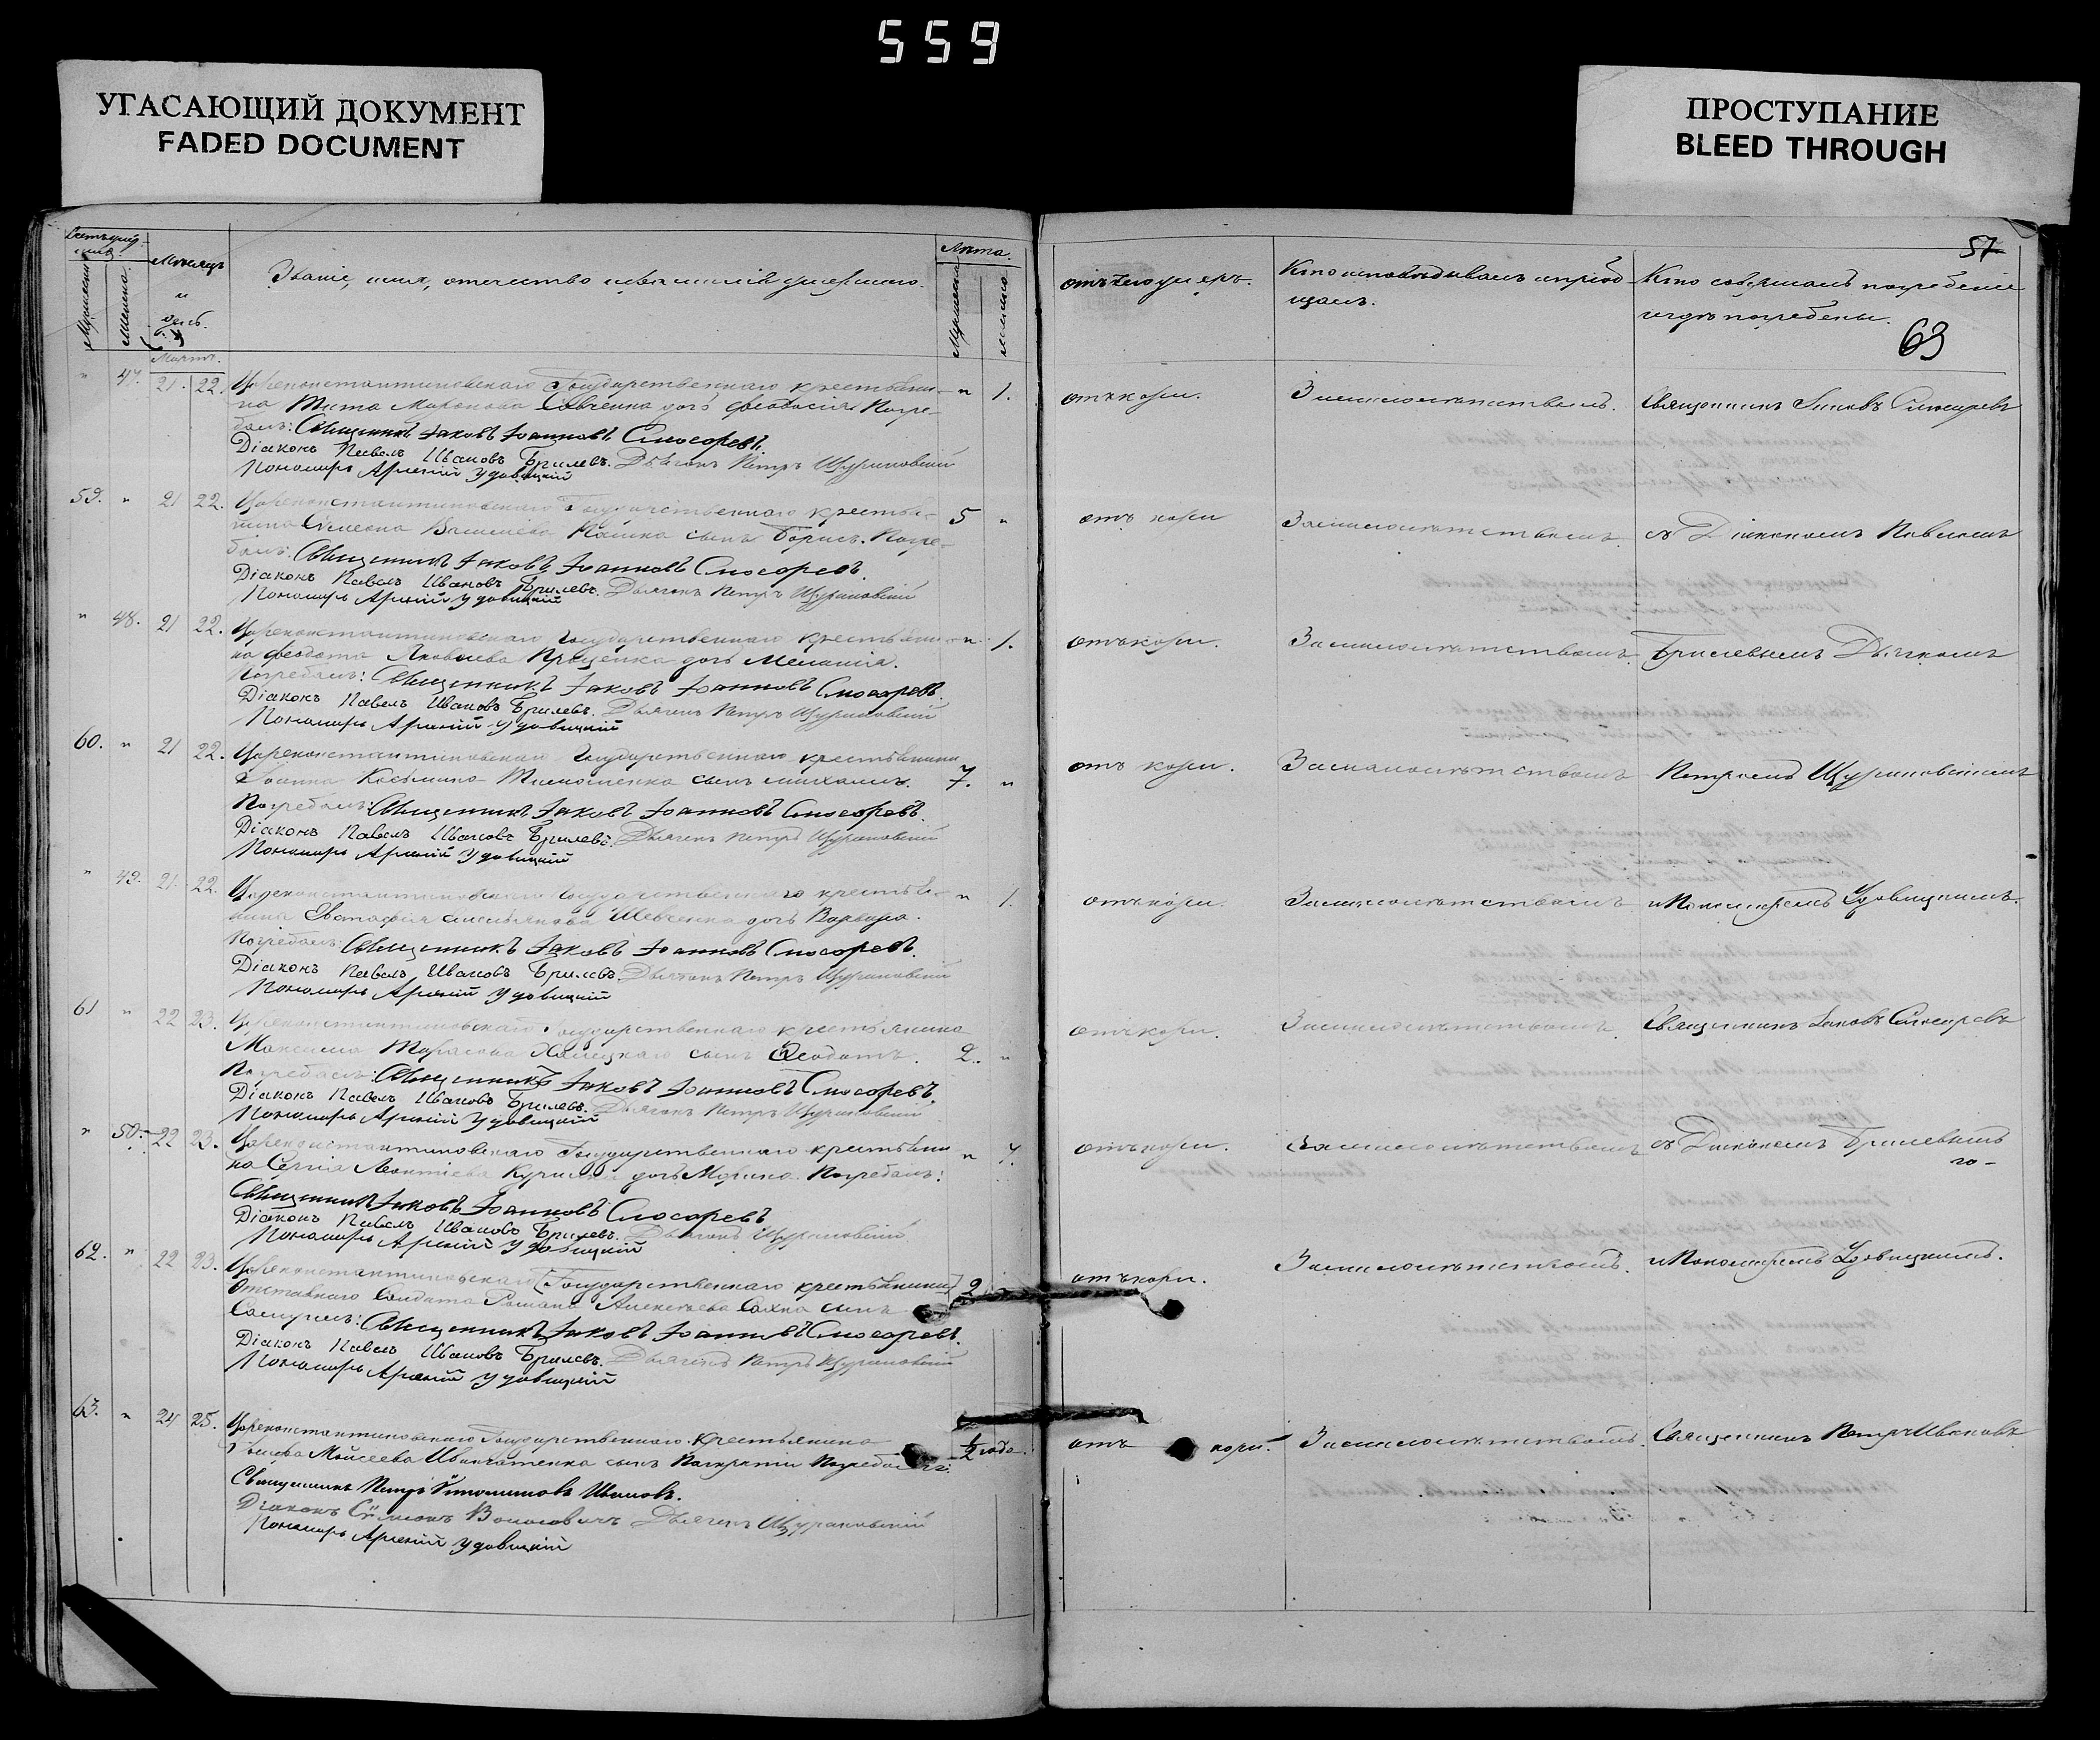 559
УГАСАЮЩИЙ ДОКУМЕНТ
FADED DOCUMENT
ПРОСТУПАНИЕ
BLEED THROUGH
57
63
Мѣсяцъ
и
день.
Званіе, имя, отчество и фамилія умершаго.
Лѣта.
Мужеска
Женска
отъ чего умеръ.
Кто исповѣдывалъ и пріоб-
щалъ.
Кто совершалъ погребеніе
и гдѣ погребены.
Мартъ.
" 47. 21. 22. Цареконстантиновскаго Государственнаго крестьяни- " 1.
на Тита Миронова Савченка дочь Феодосія. Погре-
балъ: Священникъ Іаковъ Іоанновъ Слюсаревъ.
Діаконъ Павелъ Ивановъ Брилевъ. Дьячекъ Петръ Щуриновскій
Пономарь Арсеній Удовицкій
отъ кори.
За малолѣтствомъ.
Священникъ Іаковъ Слюсаревъ
59. " 21 22. Цареконстантиновскаго Государственнаго крестья- 5 "
нина Симеона сынъ Борисъ. Погре-
балъ: Священникъ Іаковъ Іоанновъ Слюсаревъ.
Діаконъ Павелъ Ивановъ Брилевъ. Дьячекъ Петръ Щуриновскій
Пономарь Арсеній Удовицкій
отъ кори
За малолѣтствомъ.
съ Діакономъ Павломъ
" 48. 21 22. Цареконстантиновскаго Государственнаго крестьяни- " 1.
на Феодота Яковлева Проценка дочь Меланія.
Погребалъ: Священникъ Іаковъ Іоанновъ Слюсаревъ.
Діаконъ Павелъ Ивановъ Брилевъ. Дьячекъ Петръ Щуриновскій
Пономарь Арсеній Удовицкій
отъ кори.
За малолѣтствомъ.
Брилевымъ Дьячкомъ
60. " 21 22. Цареконстантиновскаго Государственнаго крестьянина
Іоанна Космина Тимошенка сынъ Михаилъ. 7. "
Погребалъ: Священникъ Іаковъ Іоанновъ Слюсаревъ.
Діаконъ Павелъ Ивановъ Брилевъ. Дьячекъ Петръ Щуриновскій
Пономарь Арсеній Удовицкій
отъ кори.
За малолѣтствомъ
Петромъ Щуриновскимъ
" 49. 21. 22. Цареконстантиновскаго Государственнаго крестья- " 1.
нина Евстафія Шевченка дочь Варвара.
Погребалъ: Священникъ Іаковъ Іоанновъ Слюсаревъ.
Діаконъ Павелъ Ивановъ Брилевъ. Дьячекъ Петръ Щуриновскій
Пономарь Арсеній Удовицкій
отъ кори.
За малолѣтствомъ
и Пономаремъ Удовицкимъ.
61 " 22 23. Цареконстантиновскаго Государственнаго крестьянина
Максима Тарасова сынъ Феодотъ. 2. "
Погребалъ: Священникъ Іаковъ Іоанновъ Слюсаревъ.
Діаконъ Павелъ Ивановъ Брилевъ. Дьячекъ Петръ Щуриновскій
Пономарь Арсеній Удовицкій
отъ кори.
За малолѣтствомъ.
Священникъ Іаковъ Слюсаревъ
" 50. 22 23. Цареконстантиновскаго Государственнаго крестьяни- "
на Сергія Леонтіева дочь Марина. Погребалъ:
Священникъ Іаковъ Іоанновъ Слюсаревъ
Діаконъ Павелъ Ивановъ Брилевъ. Дьячекъ Щуриновскій
Пономарь Арсеній Удовицкій
отъ кори.
За малолѣтствомъ
съ Діакономъ Брилевымъ
62. " 22 23. Цареконстантиновскаго [Государственнаго крестьянина] 2
Отставнаго Солдата Романа Алексѣева Сахна сынъ
Самуилъ: Священникъ Іаковъ Іоанновъ Слюсаревъ.
Діаконъ Павелъ Ивановъ Брилевъ. Дьячекъ Петръ Щуриновскій
Пономарь Арсеній Удовицкій
отъ кори.
За малолѣтствомъ.
и Пономаремъ Удовицкимъ.
63. " 24 25. Цареконстантиновскаго Государственнаго крестьянина ½ года
Моисеева сынъ Панкратій
Священникъ Петръ Ивановъ.
Діаконъ Дьячекъ Щуриновскій
Пономарь Арсеній Удовицкій
отъ кори.
За малолѣтствомъ.
Священникъ Петръ Ивановъ